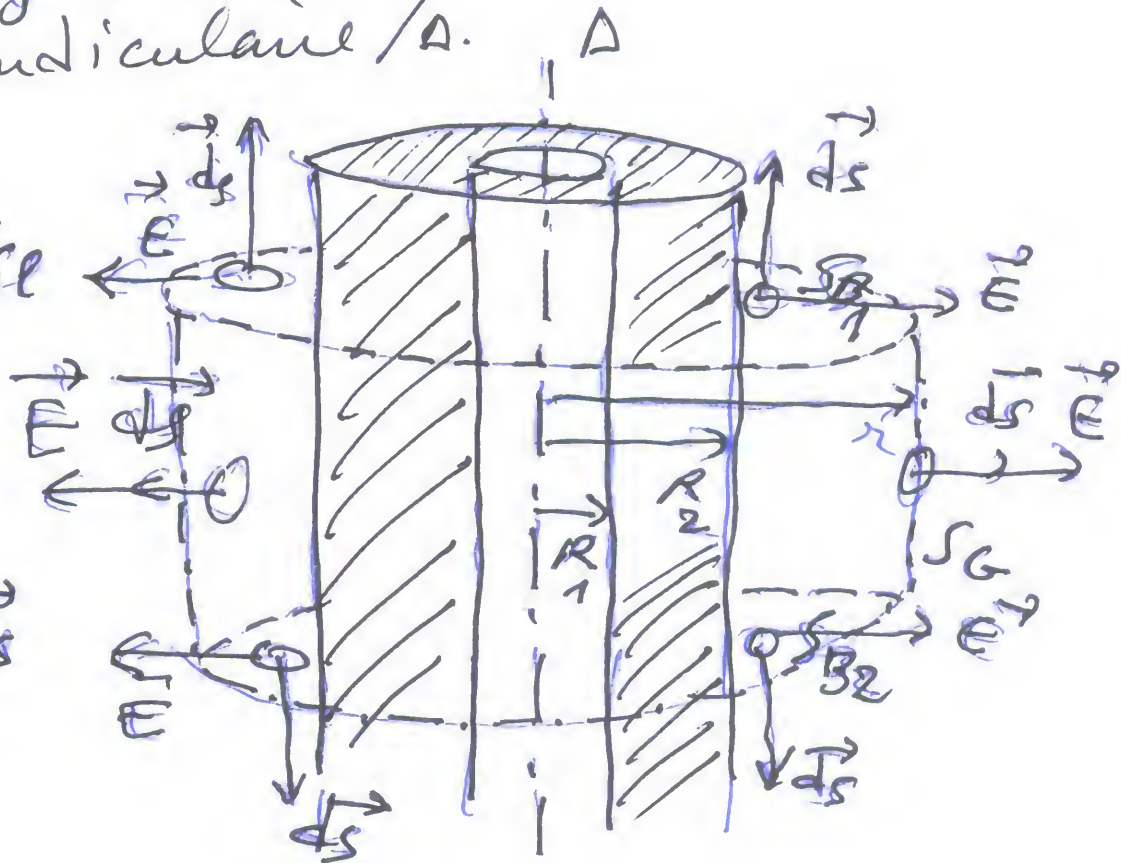 ndiculaire / Δ. Δ
ds
ds
E
E
SB1
E ds
ds E
r
R2
R1
SG
E
E
SB2
ds
ds